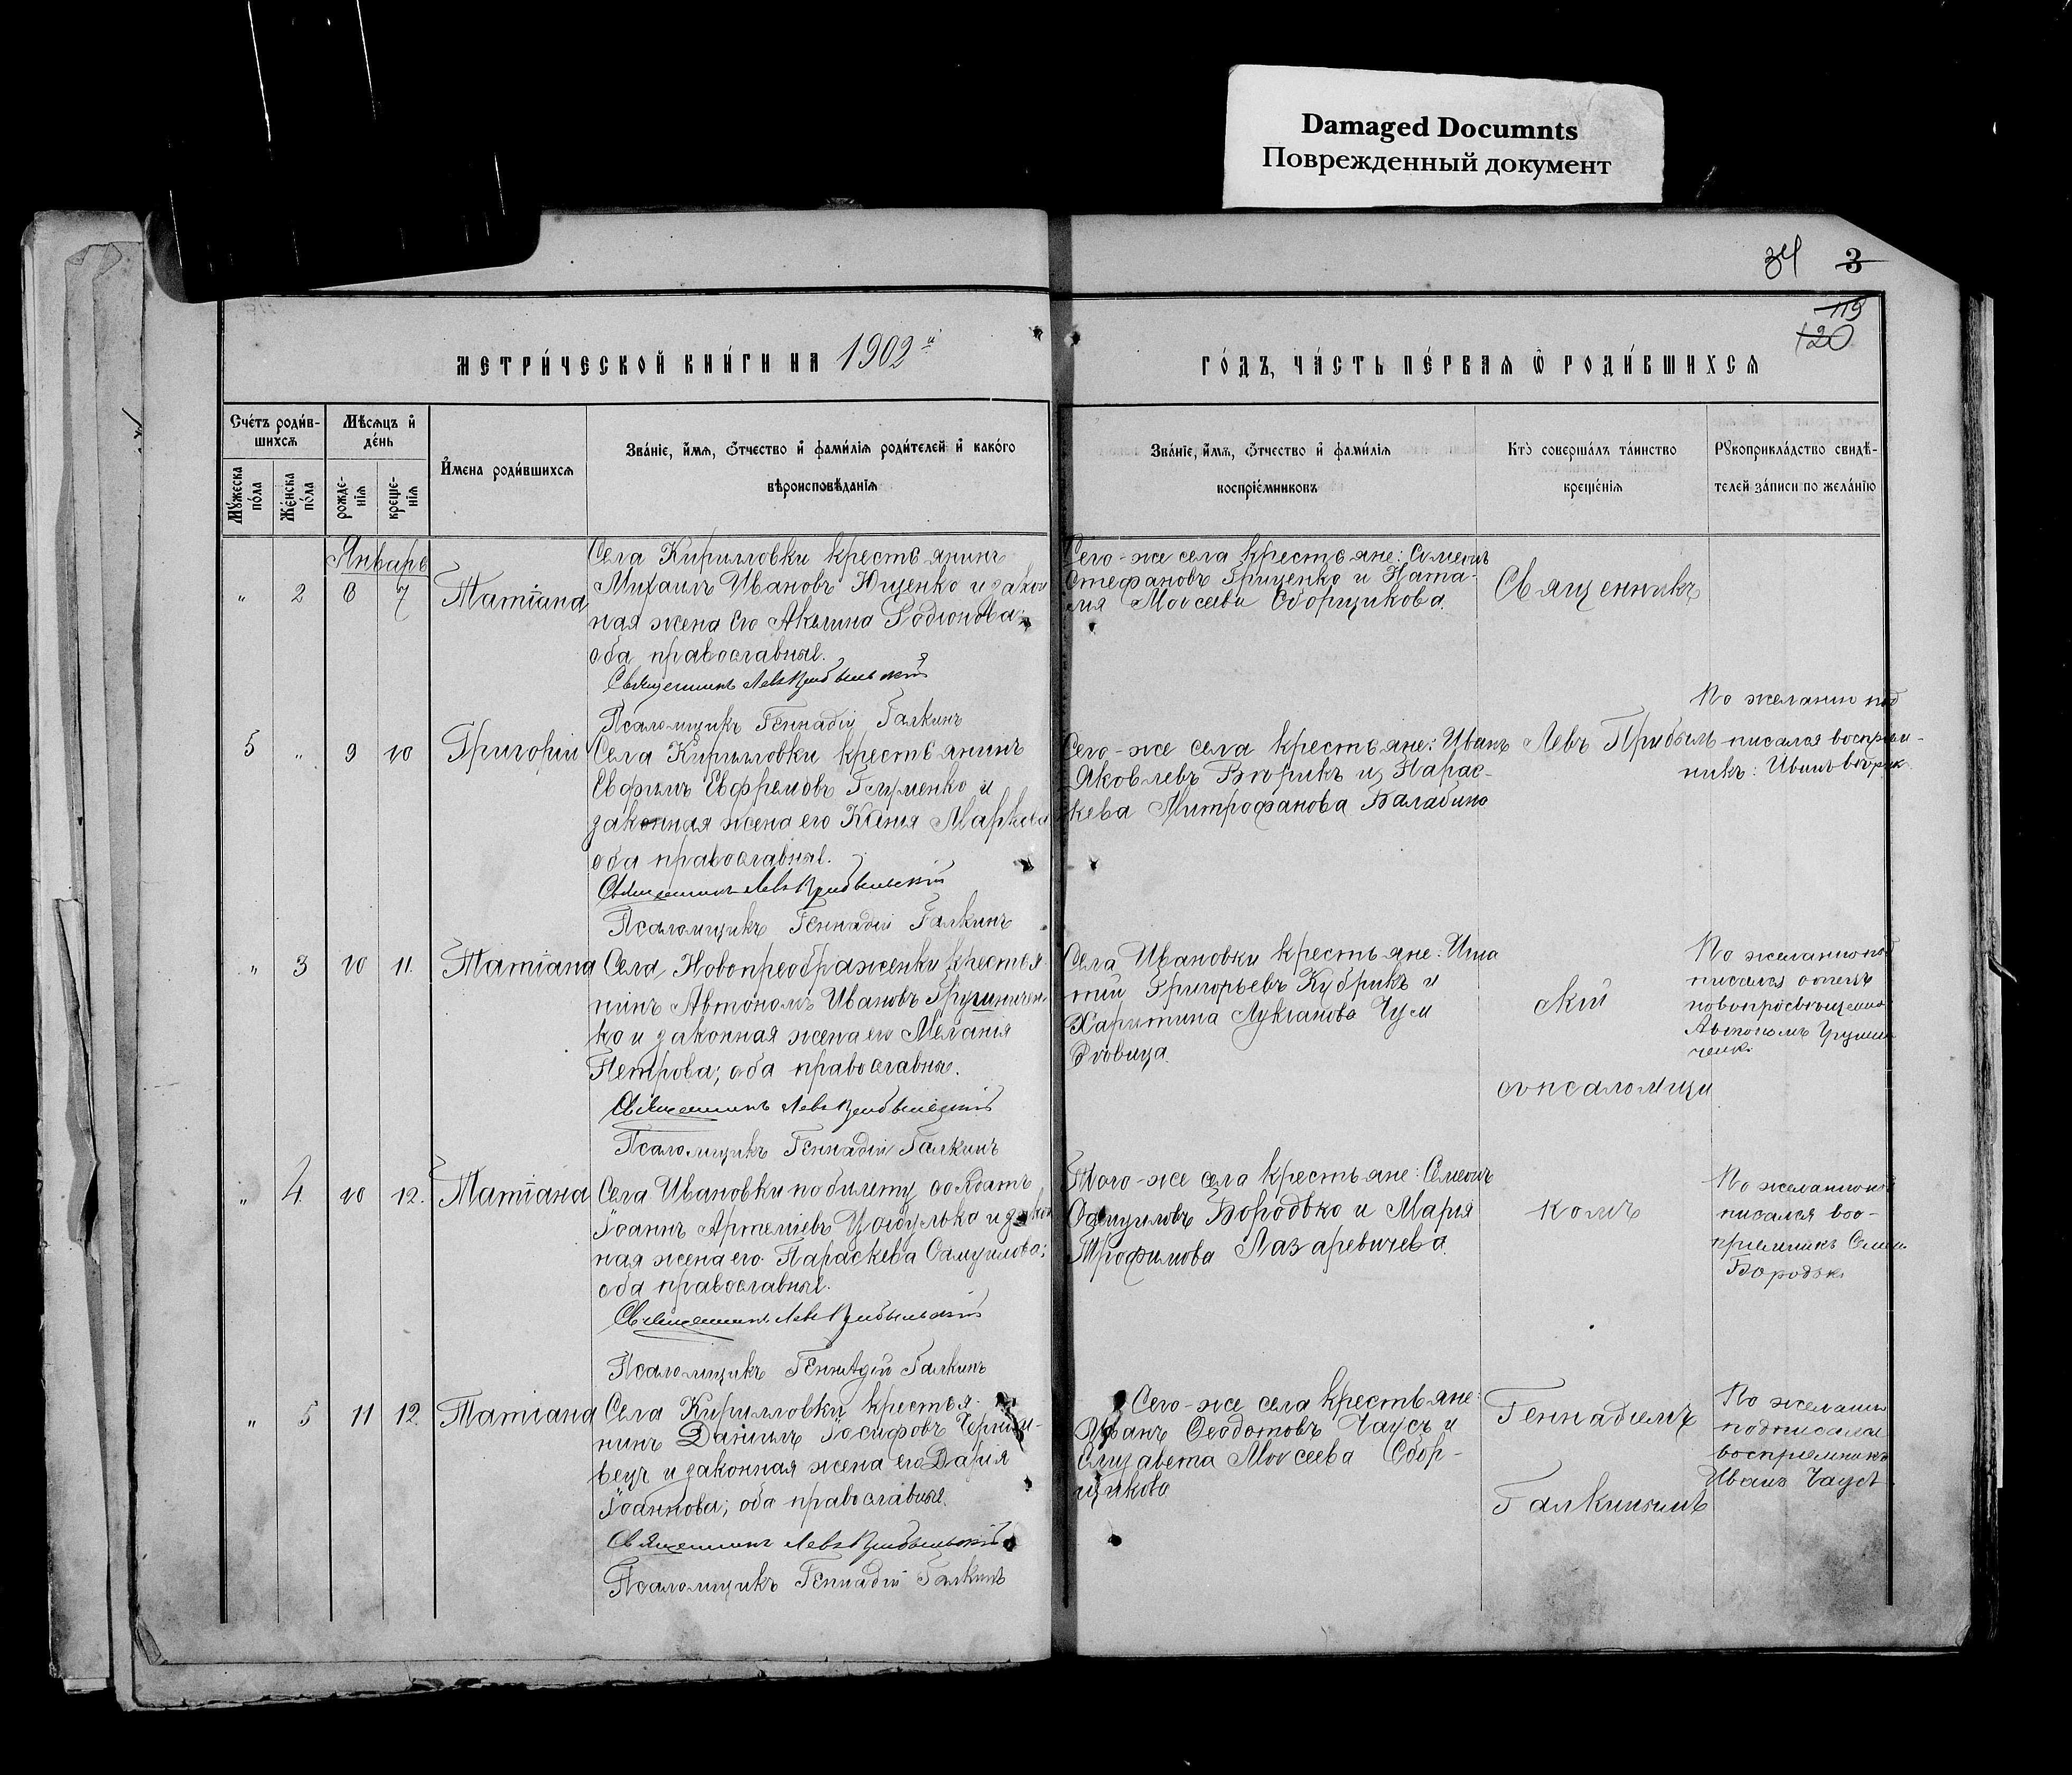 Damaged Documnts
Поврежденный документ
34 3
119
120
МЕТРИ́ЧЕСКОЙ КНИ́ГИ НА 1902 й
ГО́ДЪ, ЧА́СТЬ ПЕ́РВАѦ Ѿ РОДИ́ВШИХСѦ
Сче́тъ роди́в-
шихсѧ
Мѣ́сѧцъ и҆
де́нь
Мꙋ́жеска
по́ла
Же́нска
по́ла
рожде-
нїѧ
креще-
нїѧ
И҆мена роди́вшихсѧ
Зва́нїе, и҆́мѧ, ѻ҆́тчество и҆ фами́лїѧ роди́телей и҆ како́го
вѣроисповѣ́данїѧ
Зва́нїе, и҆́мѧ, ѻ҆́тчество и҆ фами́лїѧ
воспрїе́мниковъ
Кто̀ соверша́лъ та́инство
креще́нїѧ
Рꙋкоприкла́дство свидѣ́-
телей за́писи по жела́нїю
Январь
" 2 6 7 Татіана
Села Кирилловки крестьянинъ
Михаилъ Ивановъ Ющенко и закон
ная жена его Акилина Родіонова;
оба православные.
Священникъ Левъ Прибыльскій
Псаломщикъ Геннадій Галкинъ
Сего-же села крестьяне: Симеонъ
Стефановъ Гриценко и Ната-
лія Моисеева Сборщикова.
Священникъ
5 " 9 10 Григорій
Села Кирилловки крестьянинъ
Евфимъ Евфремовъ и
законная жена его Ксенія
оба православные.
Священникъ Левъ Прибыльскій
Псаломщикъ Геннадій Галкинъ
Сего-же села крестьяне: Иванъ
Яковлевъ Вторикъ и Парас-
кева Митрофанова Балабина
Левъ Прибыль
По желанію под
писался воспріем-
никъ: Иванъ Вторик
" 3 10 11. Татіана
Села Новопреображенки крестья-
нинъ Автономъ Ивановъ
ко и законная жена его Меланія
Петрова; оба православные.
Священникъ Левъ Прибыльскій
Псаломщикъ Геннадій Галкинъ
Села Ивановки крестьяне: Игна
тій Григорьевъ Кубрикъ и
Харитина Лукіанова
скій
съ псаломщи
По желанію под
писался отецъ
новопросвѣщенно
Автономъ
" 4 10 12. Татіана
Села Ивановки по билету солдатъ
Іоаннъ Артеміевъ и закон
ная жена его Параскева Самуилова;
оба православные.
Священникъ Левъ Прибыльскій
Псаломщикъ Геннадій Галкинъ
Того-же села крестьяне: Симеонъ
Самуиловъ Бородько и Марія
Трофимова Лазаревичева.
комъ
По желанію под
писался вос-
пріемникъ Симеон
Бородько
" 5 11 12. Татіана
Села Кирилловки крестья-
нинъ Даніилъ Іосифовъ
вецъ и законная жена его Дарія
Іоаннова; оба православные.
Священникъ Левъ Прибыльскій
Псаломщикъ Геннадій Галкинъ
Сего-же села крестьяне:
Иванъ Феодотовъ Чаусъ и
Елизавета Моисеева Сбор-
щикова
Геннадіемъ
Галкинымъ
По желанію
подписался
воспріемникъ
Иванъ Чаусъ